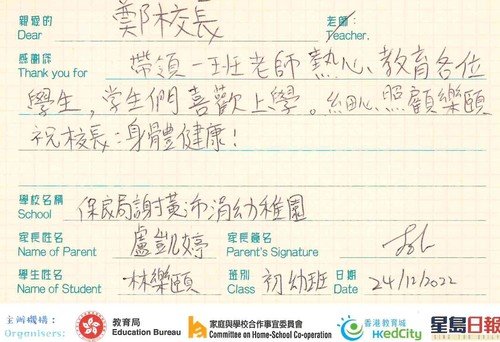 親愛的 鄭校長 老師:
Dear Teacher,
感謝你 帶領一班老師熱心教育各位
Thank you for
學生，学生們喜歡上學。細心照顧樂頤
祝校長：身體健康！
學校名稱
School 保良局謝黃沛涓幼稚園
家長姓名 盧凱婷 家長簽名
Name of Parent Parent's Signature
學生姓名 林樂頤 班別 初幼班 日期
Name of Student Class Date 24/12/2022
主辦機構： 教育局 家庭與學校合作事宜委員會 香港教育城 星島日報
Organisers: Education Bureau Committee on Home-School Co-operation HKedCity